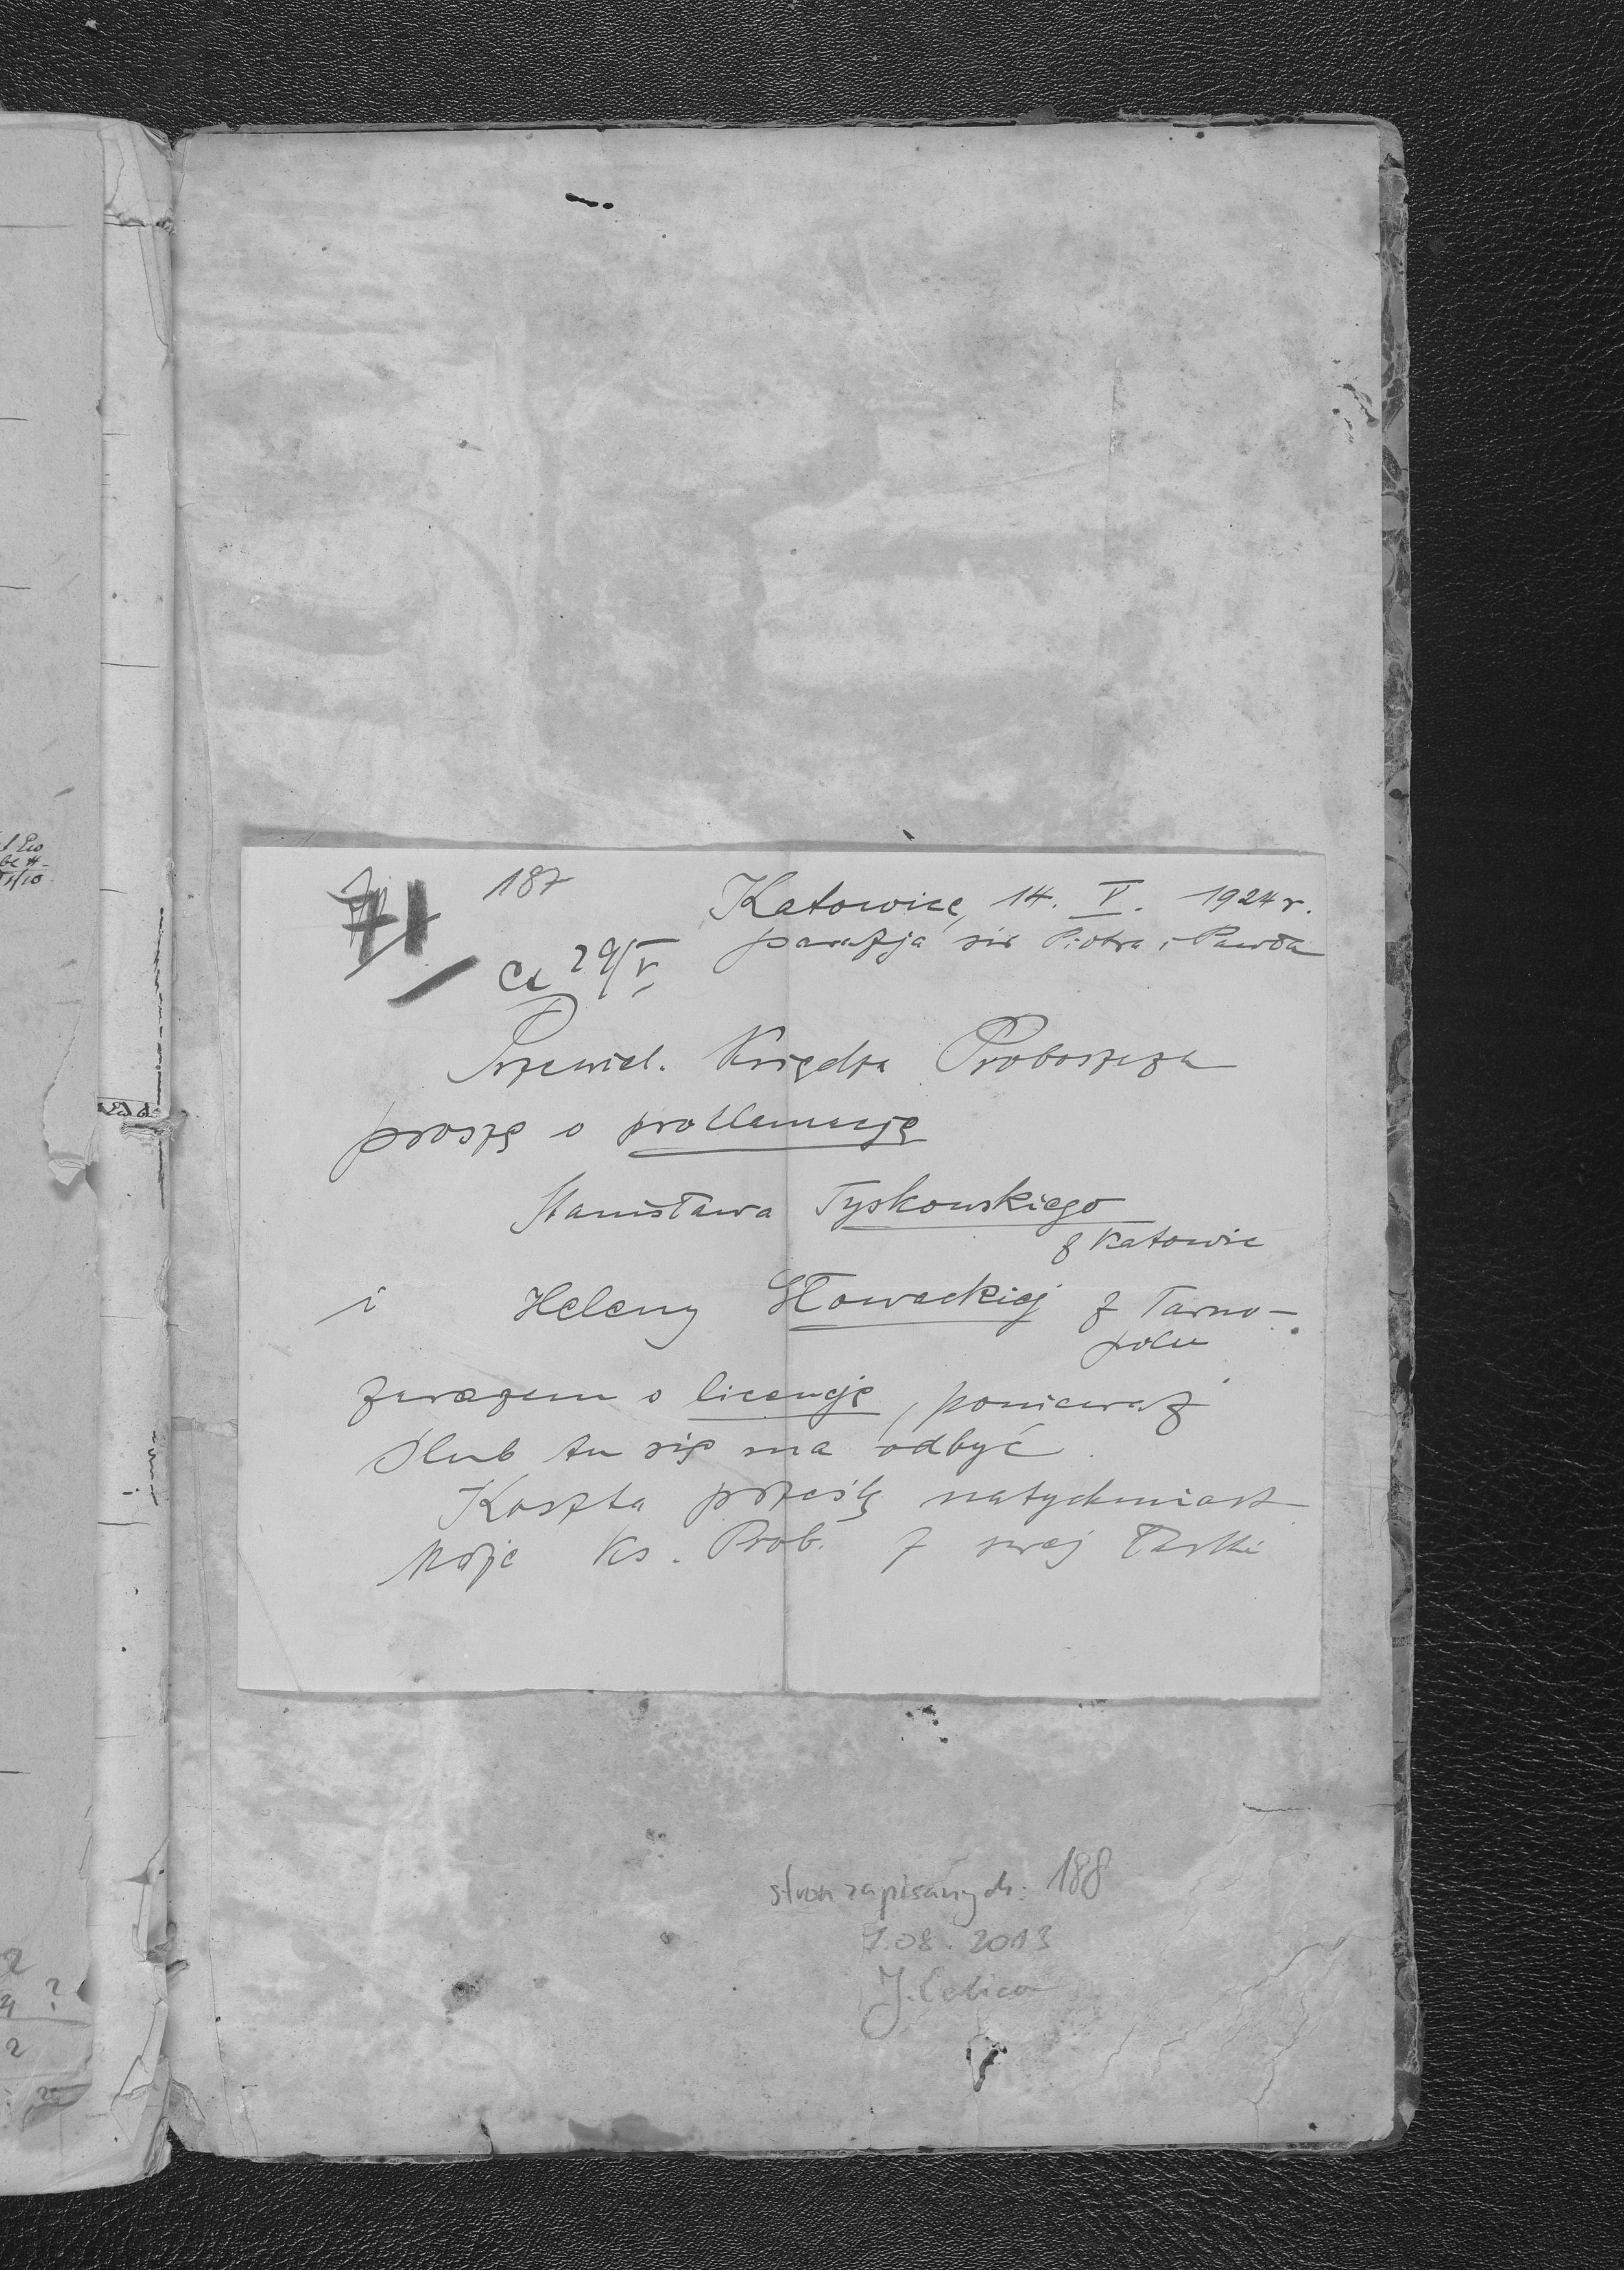 71
187
Katowice, 14. V. 1924 r.
parafja św Piotra i Pawła
29/V
Przewiel. Księdza Proboszcza
proszę o proklamację
Stanisława Tyskowskiego
z Katowic
i Heleny Słowackiej z Tarno-
polu
zarazem o licencję, ponieważ
ślub tu się ma odbyć.
Koszta prześlę natychmiast
Ks. Prob. z swej łaski
stron zapisanych: 188
7.08.2013